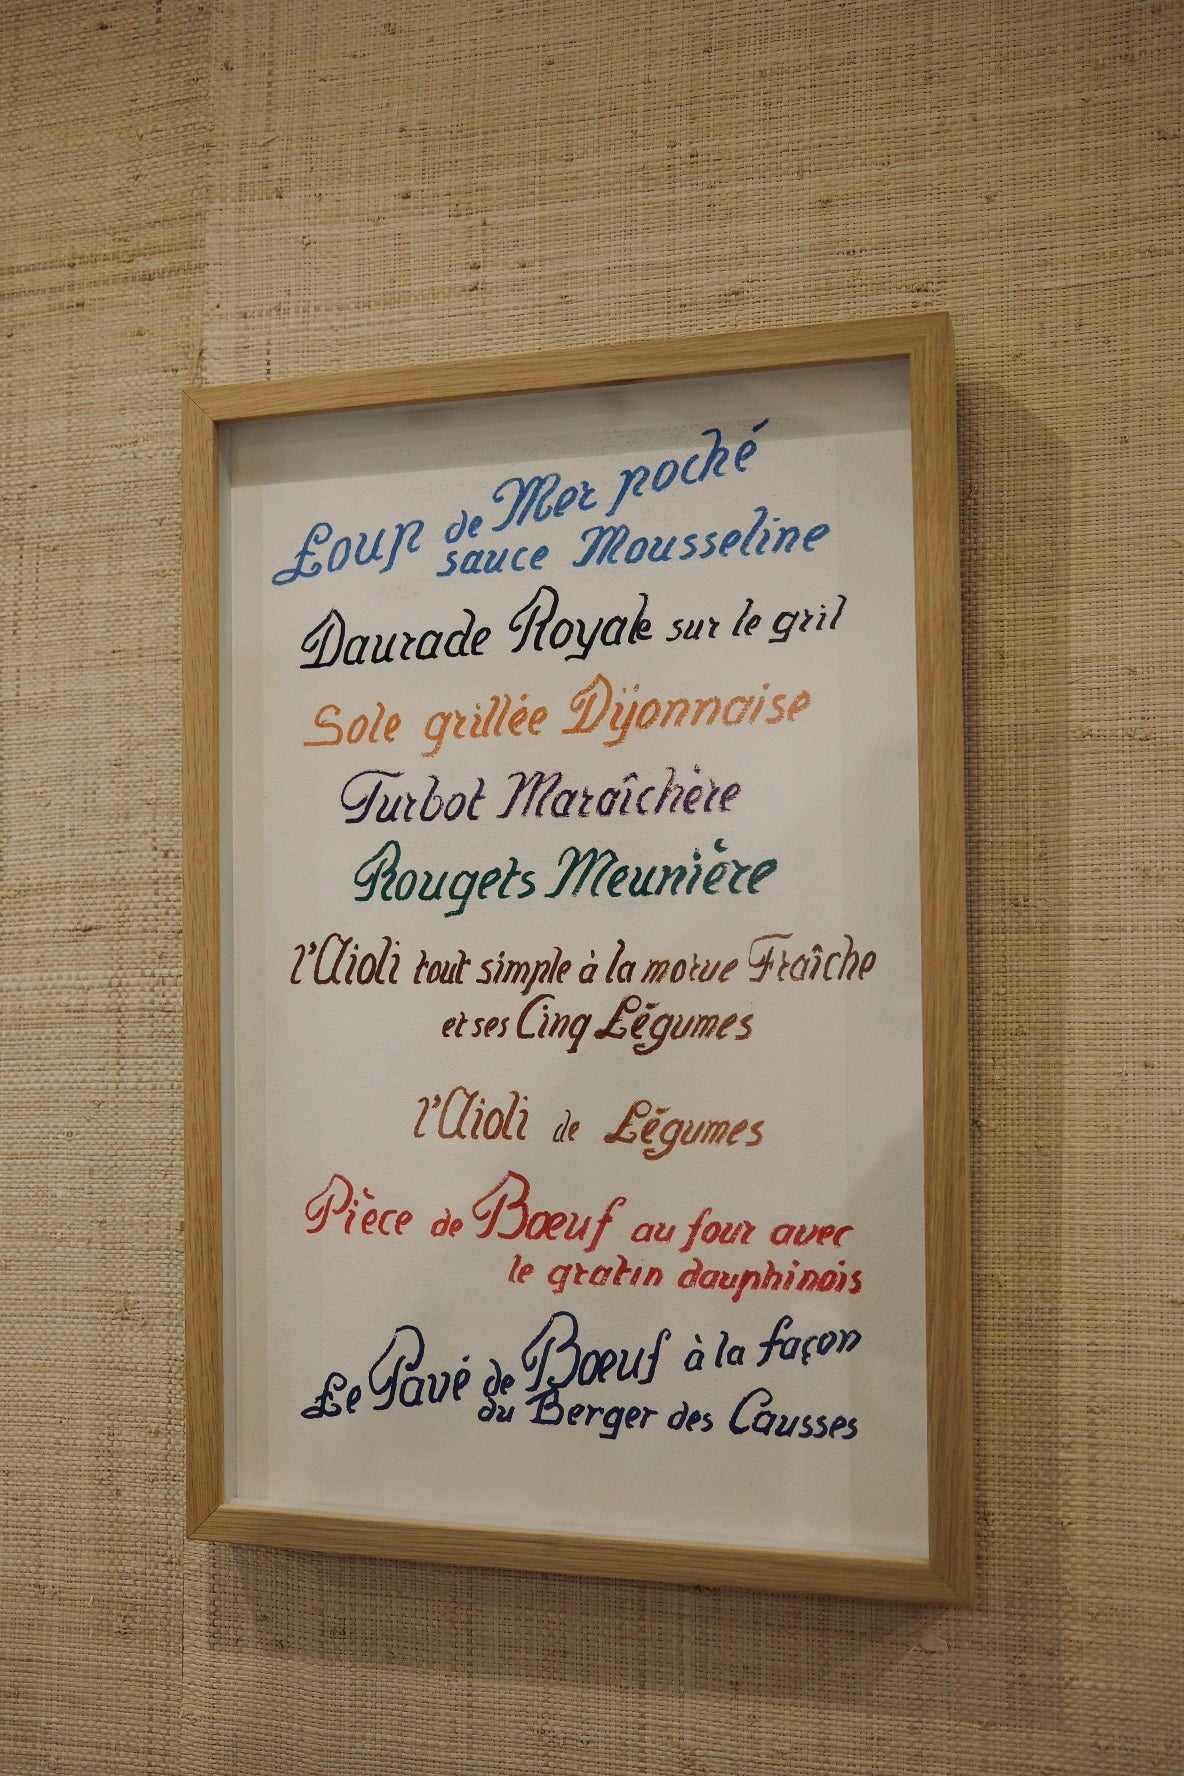 Loup de Mer poché
sauce Mousseline
Daurade Royale sur le gril
Sole grillée Dijonnaise
Turbot Maraîchère
Rougets Meunière
l'Aioli tout simple à la morue Fraîche
et ses Cinq Légumes
l'Aioli de Légumes
Pièce de Bœuf au four avec
le gratin dauphinois
Le Pavé de Bœuf à la façon
du Berger des Causses